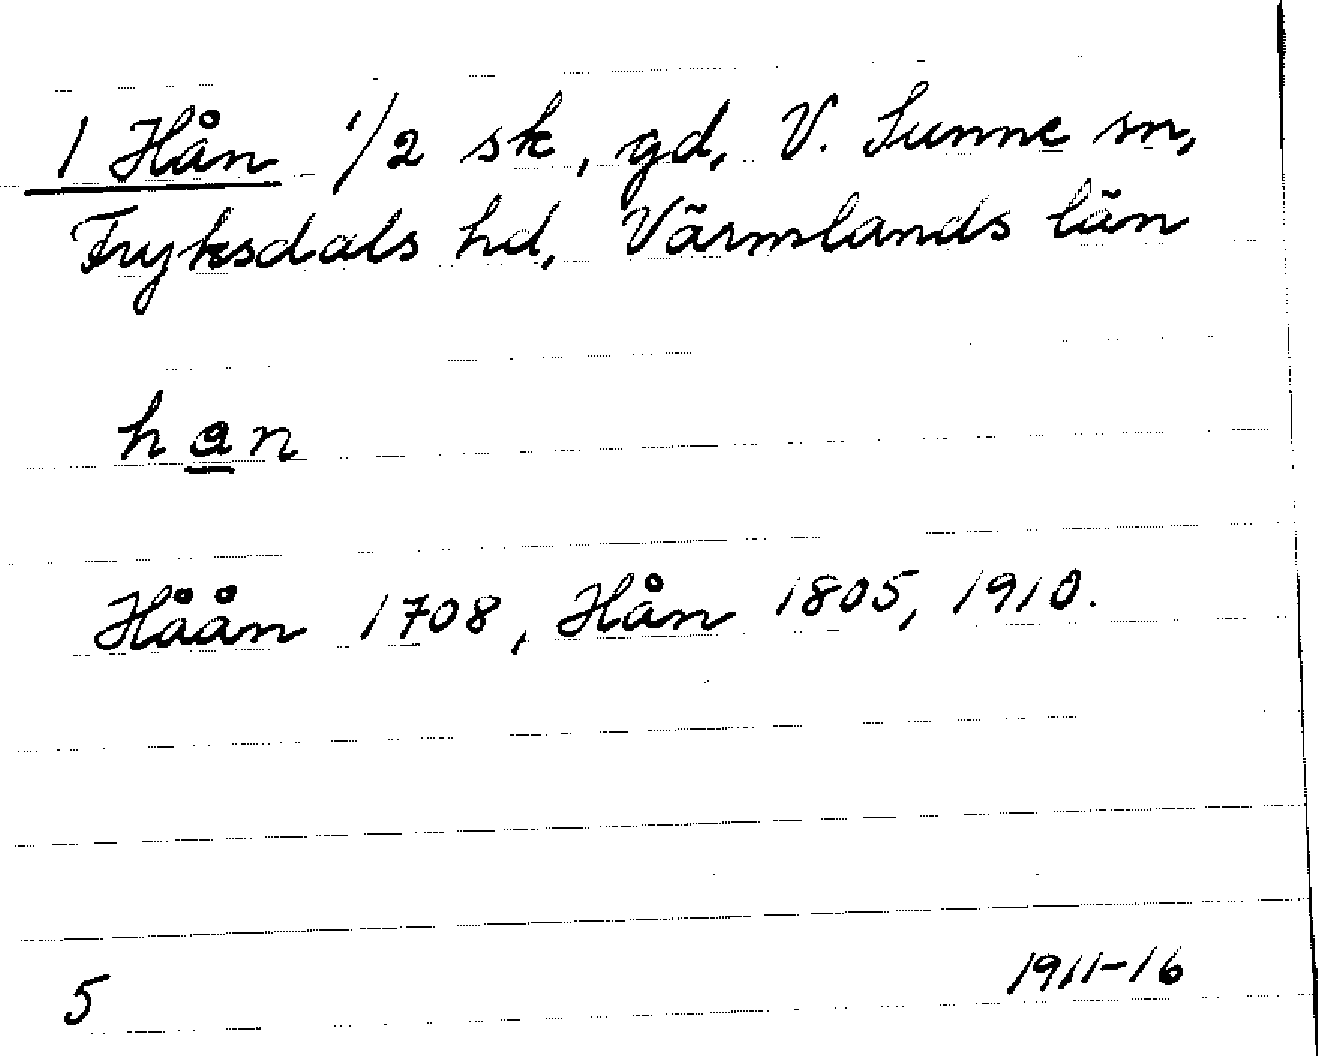 1 Hån 1/2 sk, gd, V. Sunne sn,
Fryksdals hd, Värmlands län
han
Håån 1708, Hån 1805, 1910.
5
1911-16